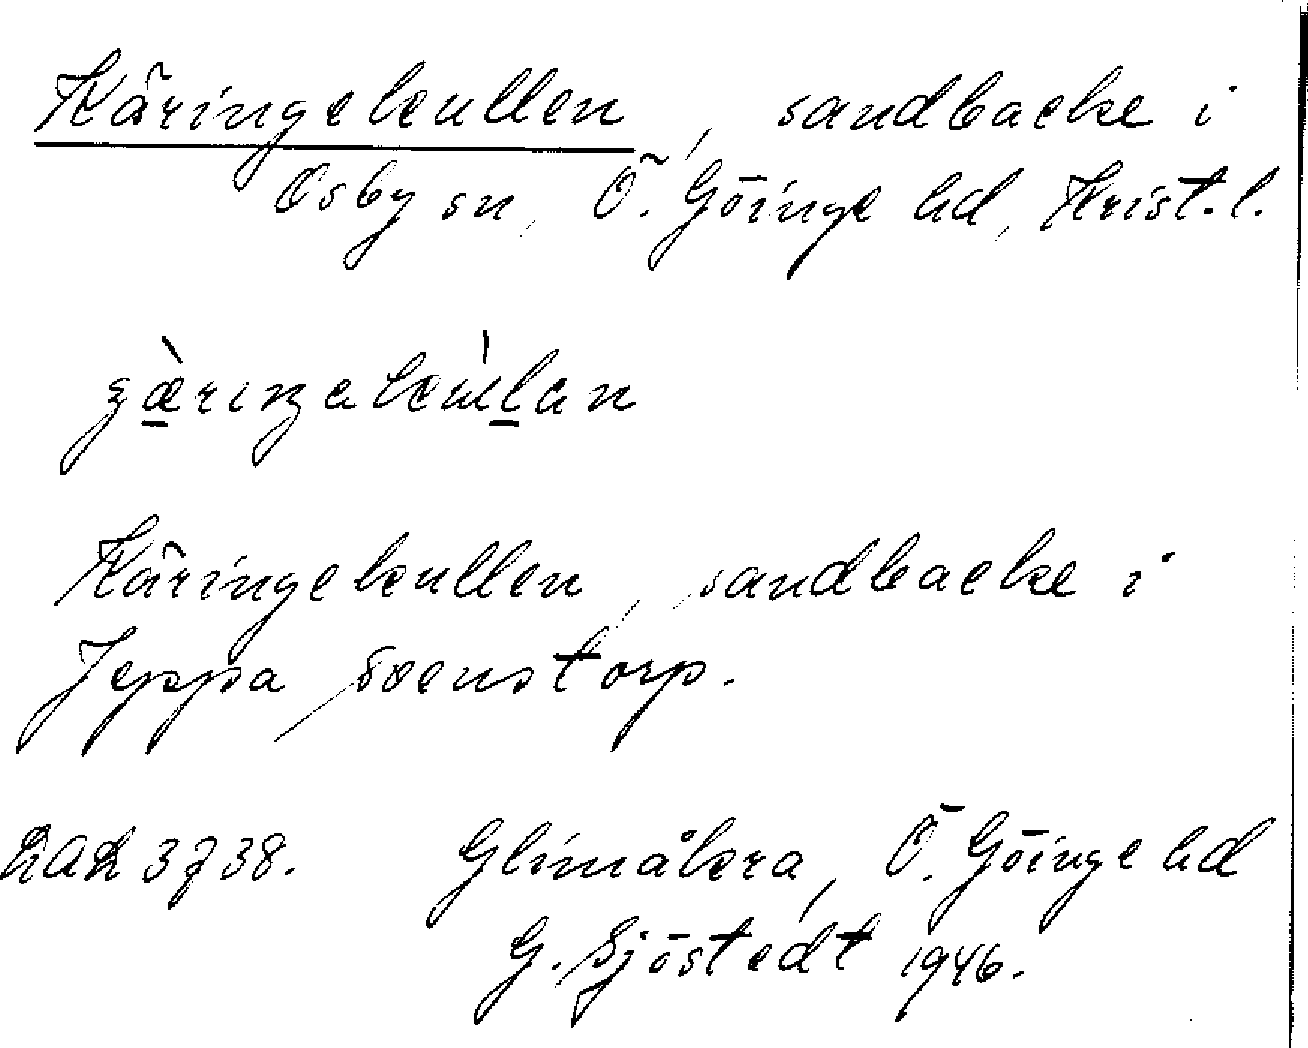 Käringekullen, sandbacke i
Osby sn, Ö. Göinge hd, Krist. l.
Käringekullen, sandbacke i
Jeppa Svenstorp.
LAL 3738. Glimåkra, Ö. Göinge hd
G. Sjöstedt 1946.